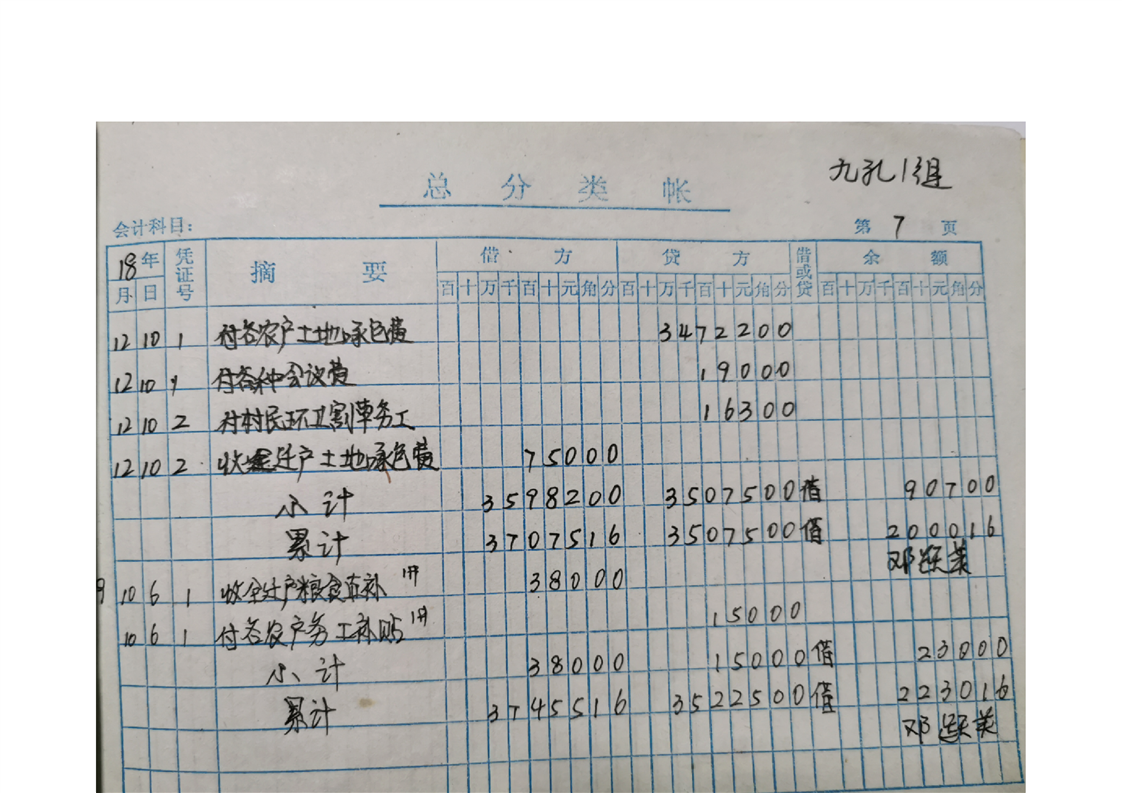 九孔1组
总分类帐
会计科目: 第 7 页
18年 凭证号 摘要 借方 贷方 借或贷 余额
月 日 百十万千百十元角分 百十万千百十元角分 百十万千百十元角分
12 10 1 付各农户土地承包费 3472200
12 10 付各种会议费 19000
12 10 2 付村民环卫割草务工 16300
12 10 2 收迁户土地承包费 75000
小计 3598200 3507500 借 90700
累计 3707516 3507500 借 200016
邓跃美
10 6 1 收迁户粮食直补 38000
10 6 1 付各农户务工补贴 15000
小计 38000 15000 借 23000
累计 3745516 3522500 借 223016
邓跃美